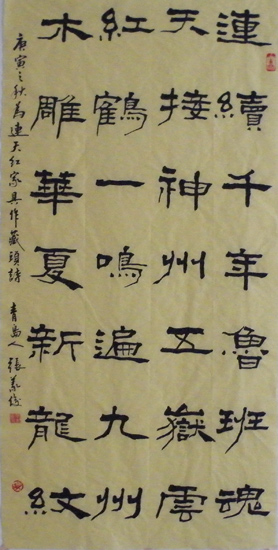 連續千年魯班魂
天接神州五嶽雲
紅鶴一鳴遍九州
木雕華夏新龍紋
庚寅之秋為連天紅家具作藏頭詩 青島人 張